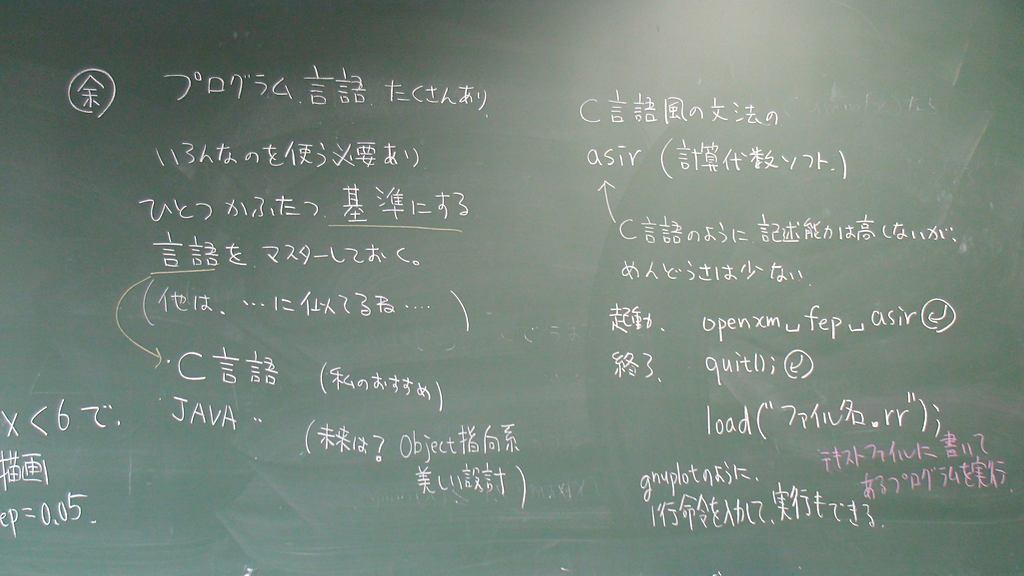 余
プログラム言語 たくさんあり
いろんなのを使う必要あり
ひとつかふたつ 基準にする
言語を マスターしておく。
(他は、…に似てるね……)
・C言語 (私のおすすめ)
JAVA ‥
(未来は? Object指向系
美しい設計)
x<6で.
描画
ep=0.05.
C言語風の文法の
asir (計算代数ソフト)
C言語のように 記述能力は高くないが、
めんどうさは少ない
起動. openxm␣fep␣asir
終了. quit();
load("ファイル名.rr");
テキストファイルに書いて
あるプログラムを実行.
gnuplotのように、
1行命令を入力して、実行もできる.